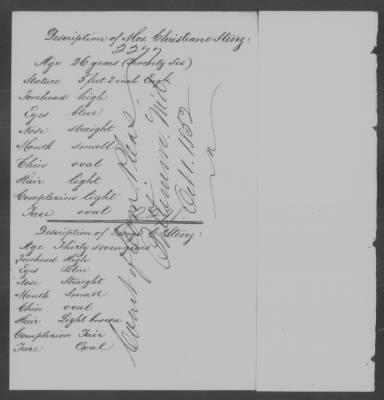 Description of Mrs. Christiane Stenz:
Age 26 years (twenty six)
Stature 5 feet 2 inch Engl.
Forehead high
Eyes blue
Nose straight
Mouth small
Chin oval
Hair light
Complexion light
Face oval
Description of Stenz:
Age Thirty seven years
Forehead High
Eyes Blue
Nose Straight
Mouth Small
Chin oval
Hair Light brown
Complexion Fair
Face Oval
Court of Com. Pleas
Oct 11. 1852